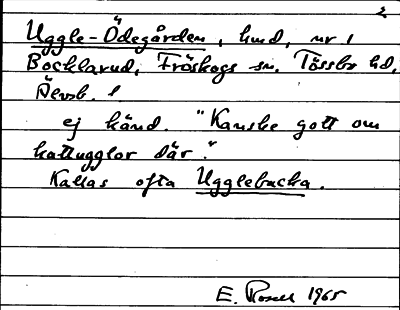 2
Uggle-Ödegården, hmd, nr 1
Bocklarud, Fröskogs sn. Tössbo hd,
Älvsb. l
ej känd. "Kanske gott om
kattugglor där."
Kallas ofta Ugglebacka.
E. 1965